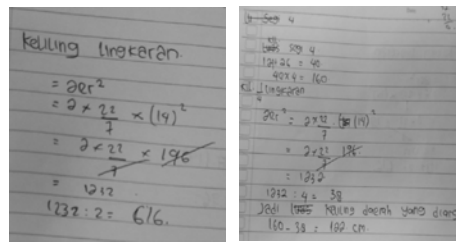 Keliling lingkaran
= 2πr²
= 2 × 22/7 × (14)²
= 2 × 22/7 × 196
= 1232
1232 : 2 = 616.
seg 4
14+26 = 40
40×4 = 160
1/4 lingkaran
2πr² = 2×22/7 (14)²
= 2×22/7 196
= 1232
1232 : 4 = 38
Jadi keliling daerah yang diars
160 - 38 = 122 cm